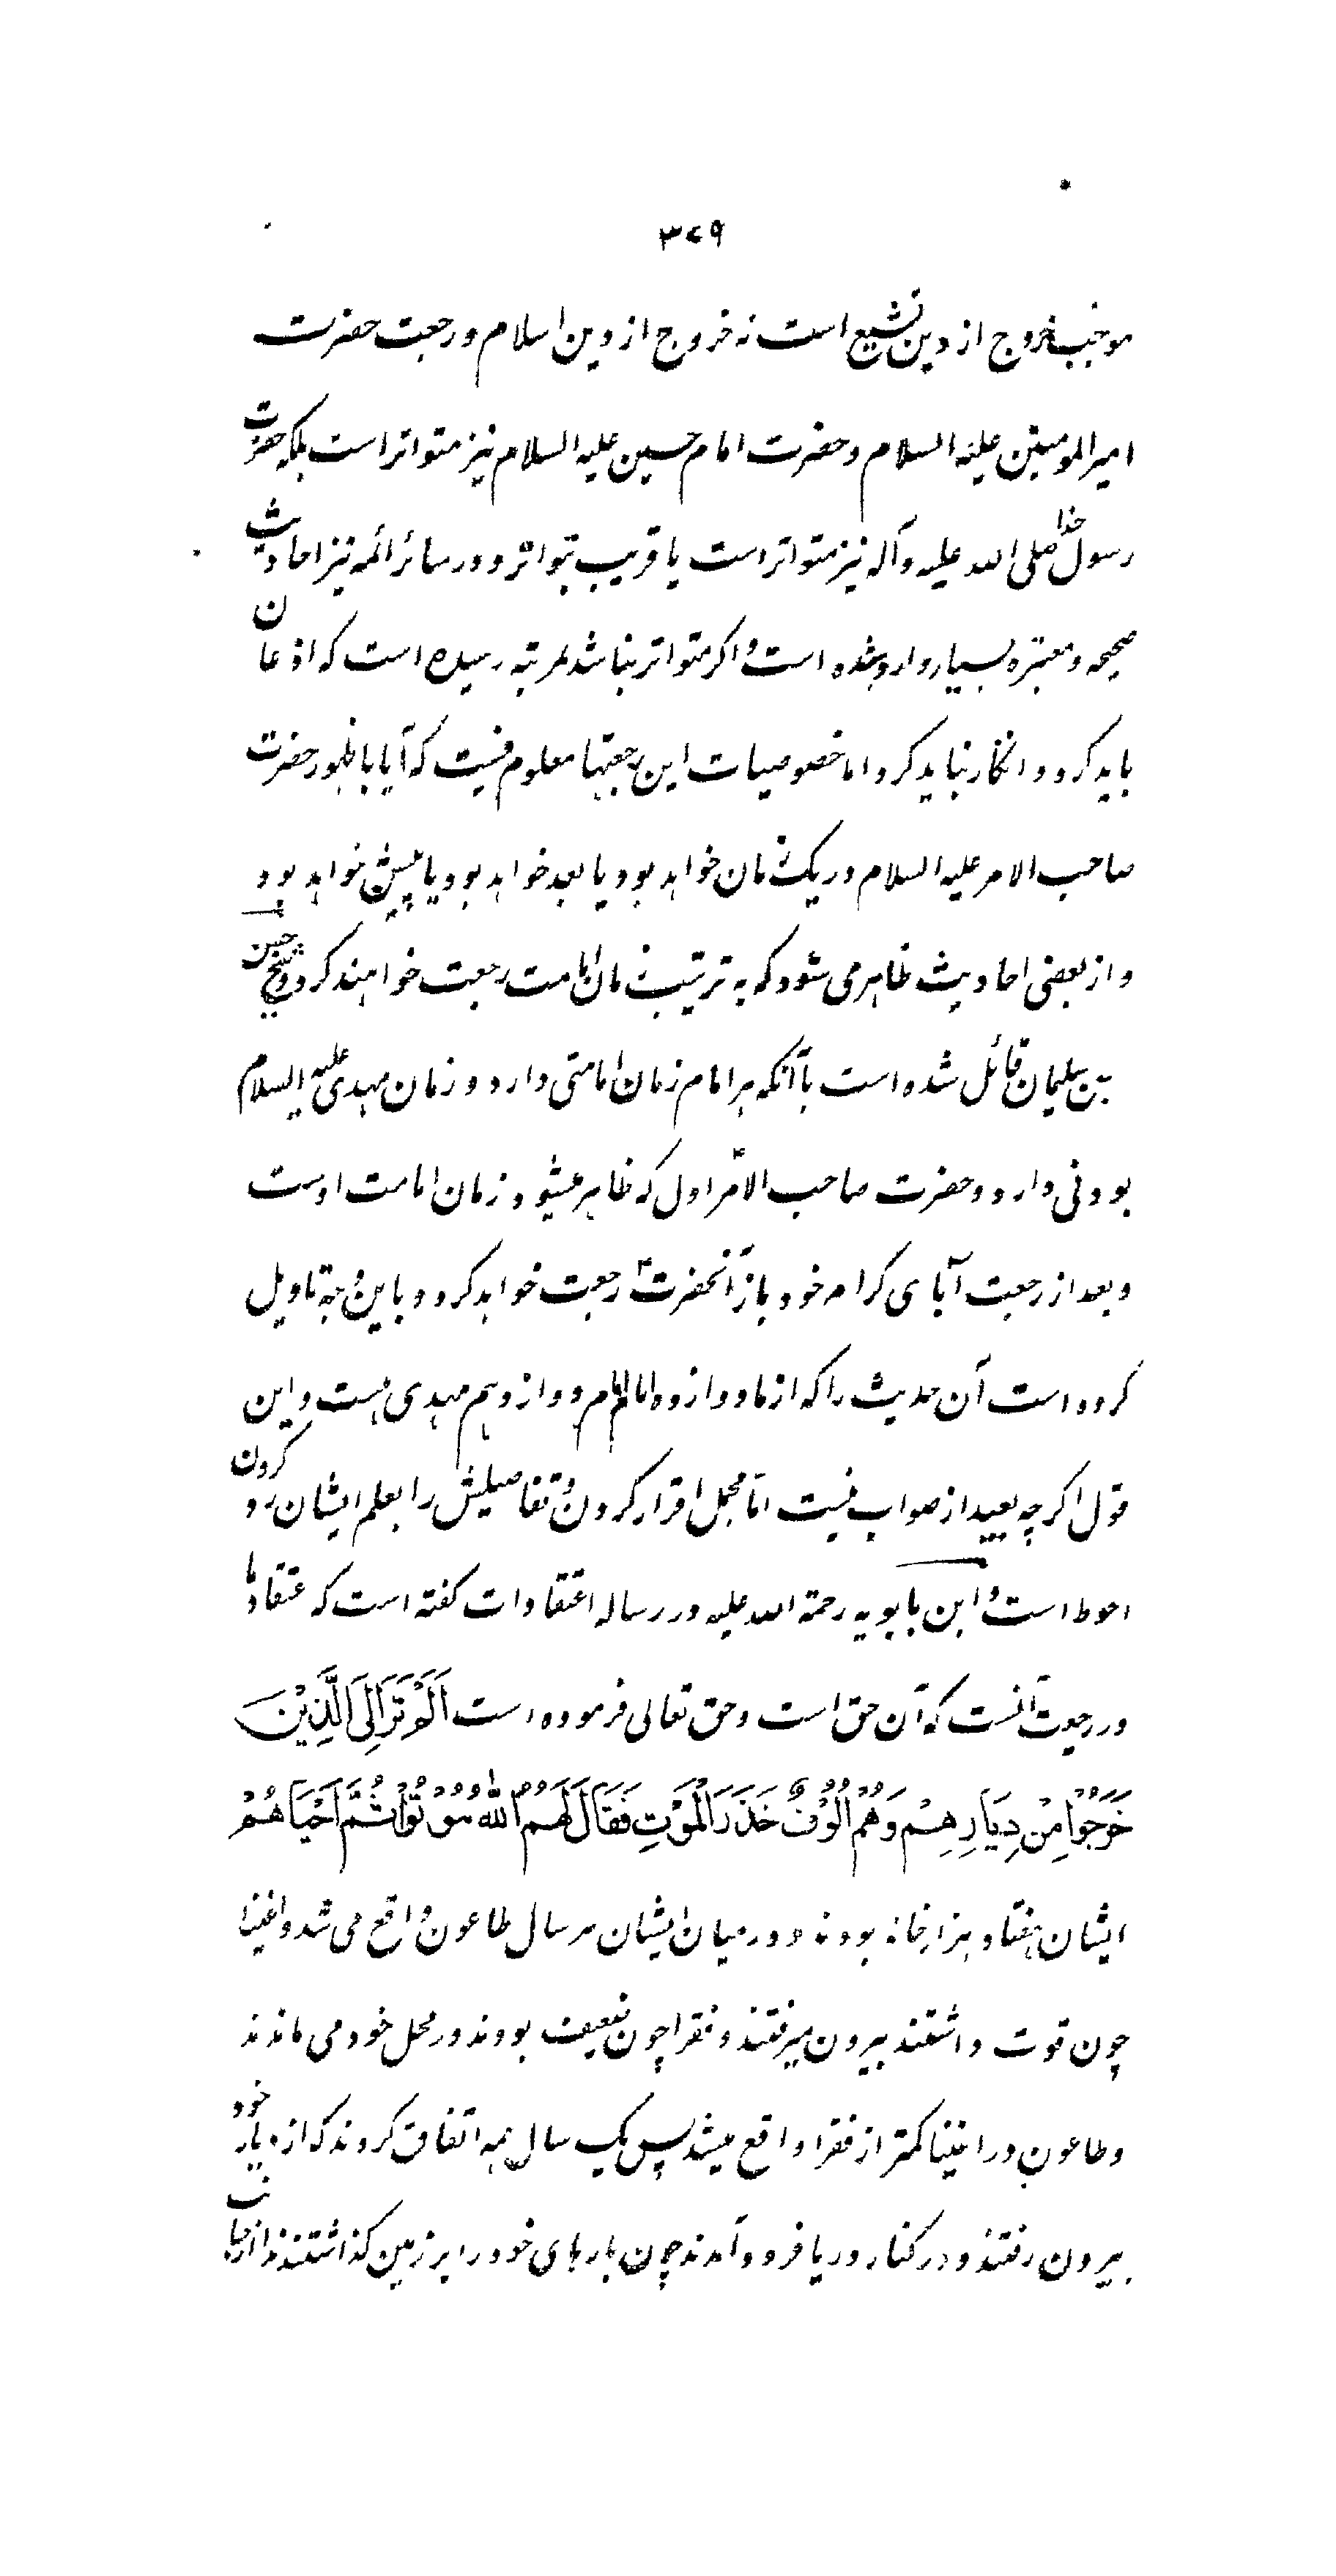 ۳۷۹
موجب خروج از دین تشیع است نه خروج از دین اسلام و رجعت حضرت
امیر المومنین علیه السلام و حضرت امام حسین علیه السلام نیز متواتر است بلکه حضرت
رسول خدا صلی الله علیه و آله نیز متواتر است یا قریب بتواتر و در سائر ائمه نیز احادیث
صحیحه و معتبره بسیار وارد شده است و اگر متواتر نباشد بمرتبه رسیده است که اذعان
باید کرد و انکار نباید کرد و اما خصوصیات این رجعتها معلوم نیست که آیا با ظهور حضرت
صاحب الامر علیه السلام در یک زمان خواهد بود یا بعد خواهد بود یا پیش خواهد بود
و از بعضی احادیث ظاهر می شود که به ترتیب زمان امامت رجعت خواهند کرد و شیخ حسن
بن سلیمان قائل شده است بآنکه هر امام زمان امامتی دارد و زمان مهدی علیه السلام
بودنی دارد و حضرت صاحب الامر اول که ظاهر میشود زمان امامت اوست
و بعد از رجعت آبای کرام خود باز آنحضرت رجعت خواهد کرد و باین وجه تاویل
کرده است آن حدیث را که از ما دوازده امام و دوازدهم مهدی هست و این
قول اگرچه بعید از صواب نیست اما مجمل اقرار کردن و تفاصیلش را بعلم ایشان رد کردن
احوط است و ابن بابویه رحمة الله علیه در رساله اعتقادات گفته است که عتقاد ما
در رجعت آنست که آن حق است و حق تعالی فرموده است اَلَمْ تَرَ اِلَی الَّذِیْنَ
خَرَجُوْا مِنْ دِیَارِهِمْ وَهُمْ اُلُوْفٌ حَذَرَ الْمَوْتِ فَقَالَ لَهُمُ اللّٰهُ مُوْتُوْا ثُمَّ اَحْیَاهُمْ
ایشان هفتاد هزار خانه بودند و در میان ایشان هر سال طاعون واقع می شد و اغنیا
چون قوت داشتند بیرون میرفتند و فقرا چون ضعیف بودند در محل خود می ماندند
و طاعون در اغنیا کمتر از فقرا واقع میشد پس یک سال همه اتفاق کردند که از دیار خود
بیرون رفتند و در کنار دریا فرود آمدند چون بارهای خود را بر زمین گذاشتند ندا از جانب